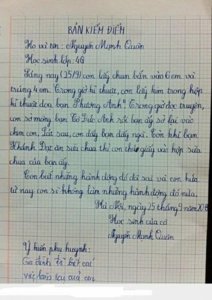 BẢN KIỂM ĐIỂM
Họ và tên: Nguyễn Mạnh Quân
Học sinh lớp: 4G
Sáng nay (15/9) con lấy chun bắn vào 6 em và
trúng 4 em. Trong giờ kĩ thuật, con lấy kim trong hộp
kĩ thuật dọa bạn Phương Anh. Trong giờ đọc truyện,
con sờ mông bạn Tú Đức Anh rồi bạn ấy sờ lại vào
chim con. Lát sau, con đấy bạn đấy ngã. Còn khi bạn
Khánh Đạt ăn sữa chua thì con chảy vào hộp sữa
chua của bạn ấy.
Con biết những hành động đó là sai và con hứa
từ nay con sẽ không làm những hành động đó nữa.
Hà Nội, ngày 15 tháng 9 năm
Học sinh của cô
Nguyễn Mạnh Quân
Ý kiến phụ huynh:
Gia đình đã biết các
việc làm của con